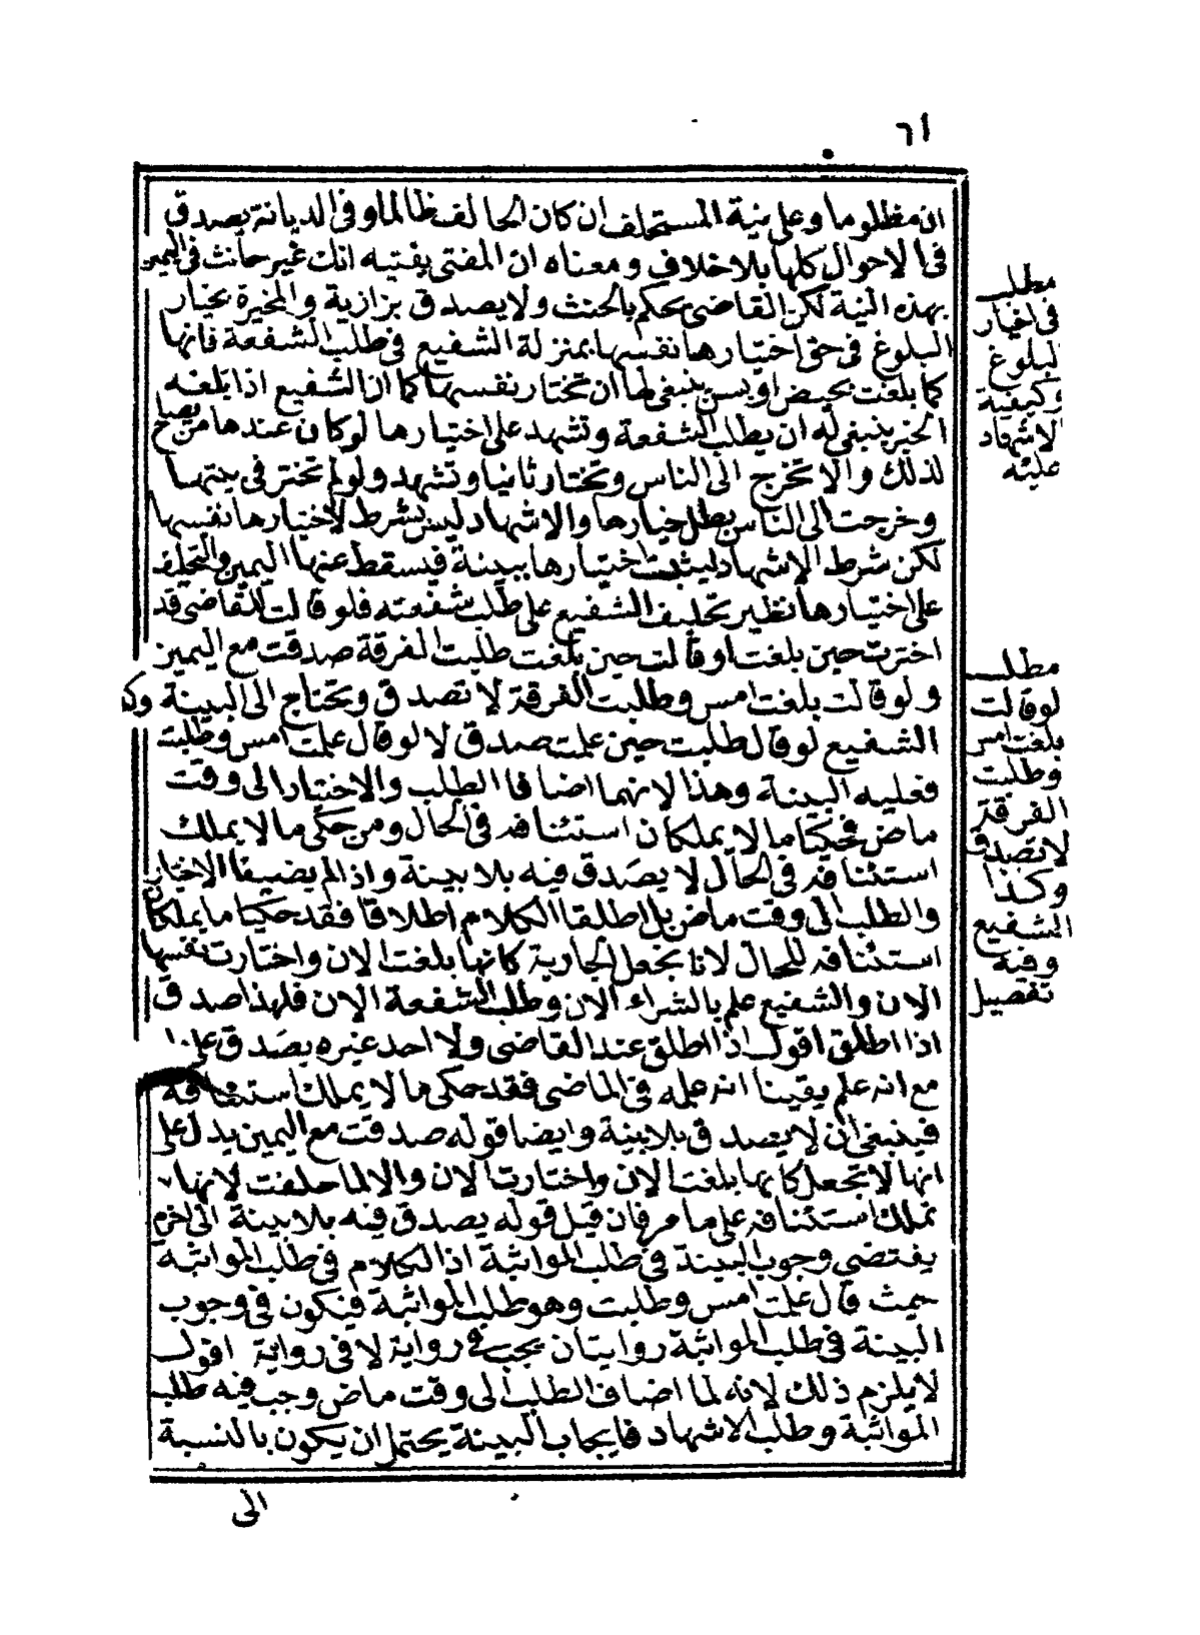 ٦١
ان مظلوما وعلى نية المستحلف ان كان الحالف ظالما وفى الديانة يصدق
فى الاحوال كلها بلا خلاف ومعناه ان المفتى يفتيه انك غير حانث فى اليمين
بهذه النية لكن القاضى يحكم بالحنث ولا يصدق بزازية والمخيرة بخيار
البلوغ فى حق اختيارها نفسها بمنزلة الشفيع فى طلب الشفعة فانها
كما بلغت بحيض او بسن ينبغى لها ان تختار نفسها كما ان الشفيع اذا بلغه
الخبر ينبغى له ان يطلب الشفعة وتشهد على اختيارها لو كان عندها من يصلح
لذلك والا تخرج الى الناس وتختار ثانيا وتشهد ولو لم تختر فى بيتها
وخرجت الى الناس بطل خيارها والاشهاد ليس بشرط لاختيارها نفسها
لكن شرط الاشهاد ليثبت اختيارها ببينة فيسقط عنها اليمين والتحليف
على اختيارها نظير تحليف الشفيع على طلب شفعته فلو قالت للقاضى قد
اخترت حين بلغت او قالت حين بلغت طلبت الفرقة صدقت مع اليمين
ولو قالت بلغت امس وطلبت الفرقة لا تصدق وتحتاج الى البينة وكذا
الشفيع لو قال طلبت حين علمت صدق لا لو قال علمت امس وطلبت
فعليه البينة وهذا لانهما اضافا الطلب والاختيار الى وقت
ماض فحكيا ما لا يملكان استئنافه فى الحال ومن حكى ما لا يملك
استئنافه فى الحال لا يصدق فيه بلا بينة واذا لم يضيفا الاختيار
والطلب الى وقت ماض بل اطلقا الكلام اطلاقا فقد حكيا ما يملكان
استئنافه للحال لانا نجعل الجارية كانها بلغت الان واختارت نفسها
الان والشفيع علم بالشراء الان وطلب الشفعة الان فلهذا صدق
اذا اطلق اقول اذا اطلق عند القاضى ولا احد غيره يصدق على
مع انه علم يقينا انه علمه فى الماضى فقد حكى ما لا يملك استئنافه
فينبغى ان لا يصدق بلا بينة وايضا قوله صدقت مع اليمين يدل على
انها لا تجعل كانها بلغت الان واختارت الان والا لما حلفت لانها
تملك استئنافه على ما مر فان قيل قوله يصدق فيه بلا بينة الى اخره
يقتضى وجوب البينة فى طلب المواثبة اذ الكلام فى طلب المواثبة
حيث قال علمت امس وطلبت وهو طلب المواثبة فيكون فى وجوب
البينة فى طلب المواثبة روايتان يجب فى رواية لا فى رواية اقول
لا يلزم ذلك لانه لما اضاف الطلب الى وقت ماض وجب فيه طلب
المواثبة وطلب الاشهاد فايجاب البينة يحتمل ان يكون بالنسبة
الى
مطلب
فى اخيار
البلوغ
وكيفية
الاشهاد
عليه
مطلب
لو قالت
بلغت امس
وطلبت
الفرقة
لا تصدق
وكذا
الشفيع
وفيه
تفصيل